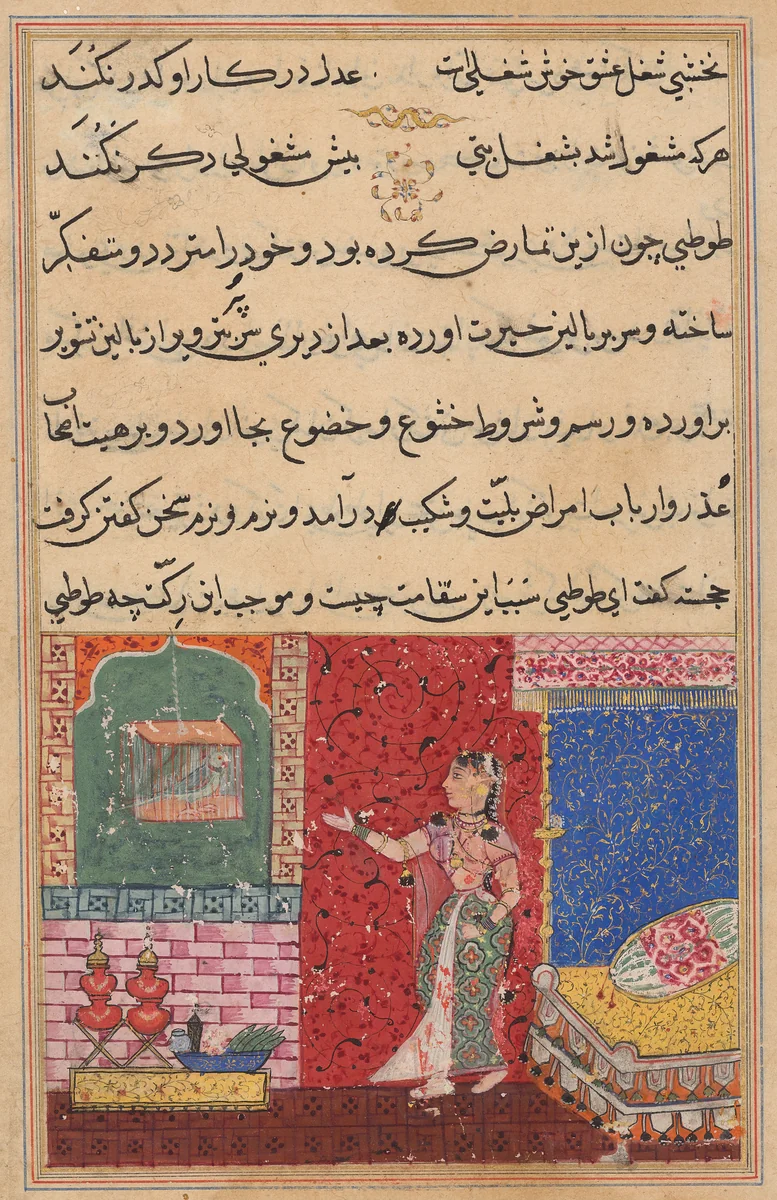 نخشبي شغل عشق خوش شغلي است عدل در كار او كدر نكنند
هركه مشغول شد بشغل بتي بيش مشغولي دكر نكنند
طوطي چون ازين تمارض كرده بود و خود را متردد و متفكّر
ساخته و سر بر بالين حيرت اورده بعد از ديري سر پر تزوير از بالين تشوير
براورده و رسم و شروط خشوع و خضوع بجا اورد و بر هيت اصحاب
عُذر وارباب امراض بليّت و شكيب درآمد و نرم و نرم سخن كفتن كرفت
خجسته كفت اي طوطي سَبَب اين سقامت چيست و موجب اين ركّت چه طوطي